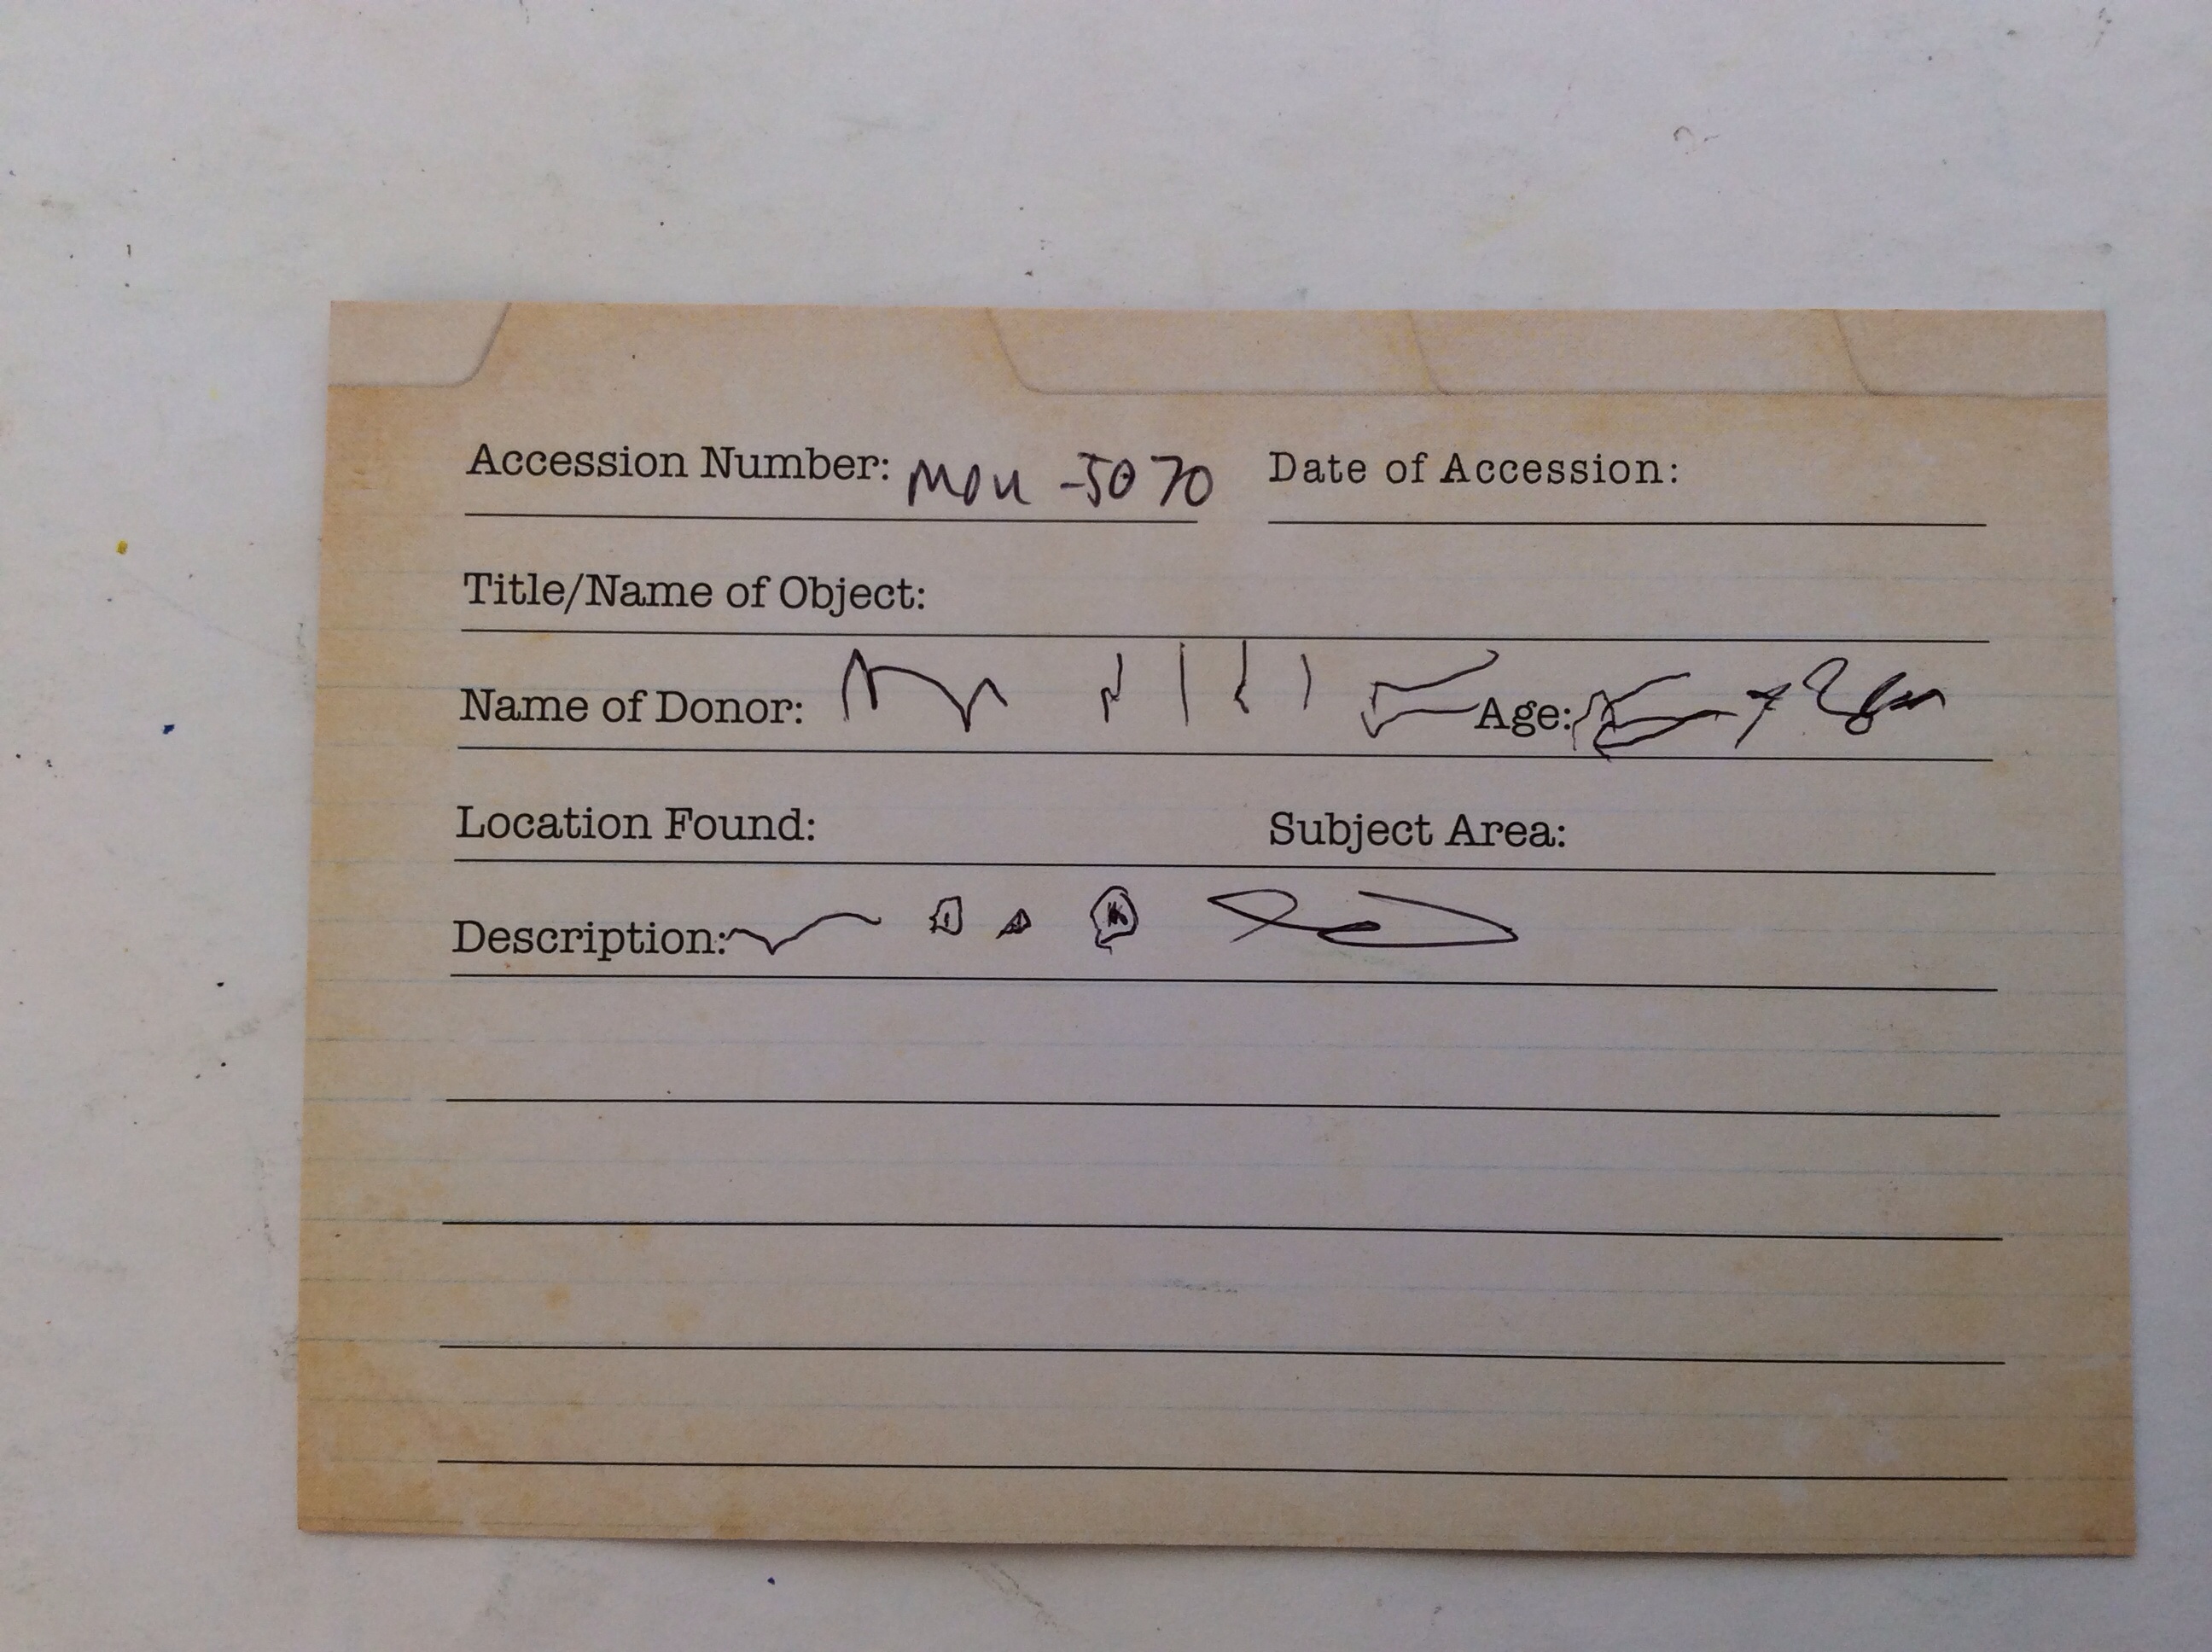 Accession Number: MOU -5070 Date of Accession:
Title/Name of Object:
Name of Donor: Age:
Location Found: Subject Area:
Description: